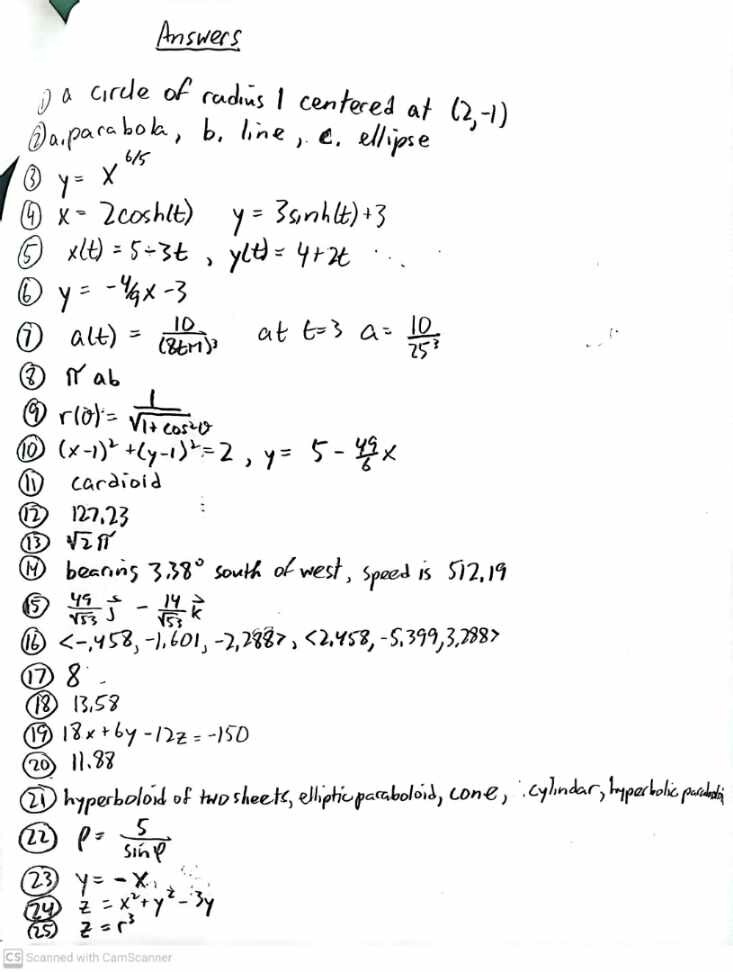 Answers
① a circle of radius 1 centered at (2,-1)
② a. parabola, b. line, c. ellipse
③ y = x^6/5
④ x = 2cosh(t) y = 3sinh(t)+3
⑤ x(t) = 5-3t, y(t) = 4+2t
⑥ y = -4/9x -3
⑦ a(t) = 10/(8t+1)³ at t=3 a = 10/25³
⑧ π ab
⑨ r(θ) = 1/√1+cos²θ
⑩ (x-1)² + (y-1)² = 2, y = 5 - 49/6 x
⑪ cardioid
⑫ 127.23
⑬ √2 π
⑭ bearing 3.38° south of west, speed is 512.19
⑮ 49/√53 j - 14/√53 k
⑯ <-.458, -1.601, -2.288>, <2.458, -5.399, 3.288>
⑰ 8
⑱ 13.58
⑲ 18x+6y-12z = -150
⑳ 11.88
㉑ hyperboloid of two sheets, elliptic paraboloid, cone, cylindar, hyperbolic
㉒ ρ = 5/sin φ
㉓ y = -x
㉔ z = x²+y²-3y
㉕ z = r³
CS Scanned with CamScanner